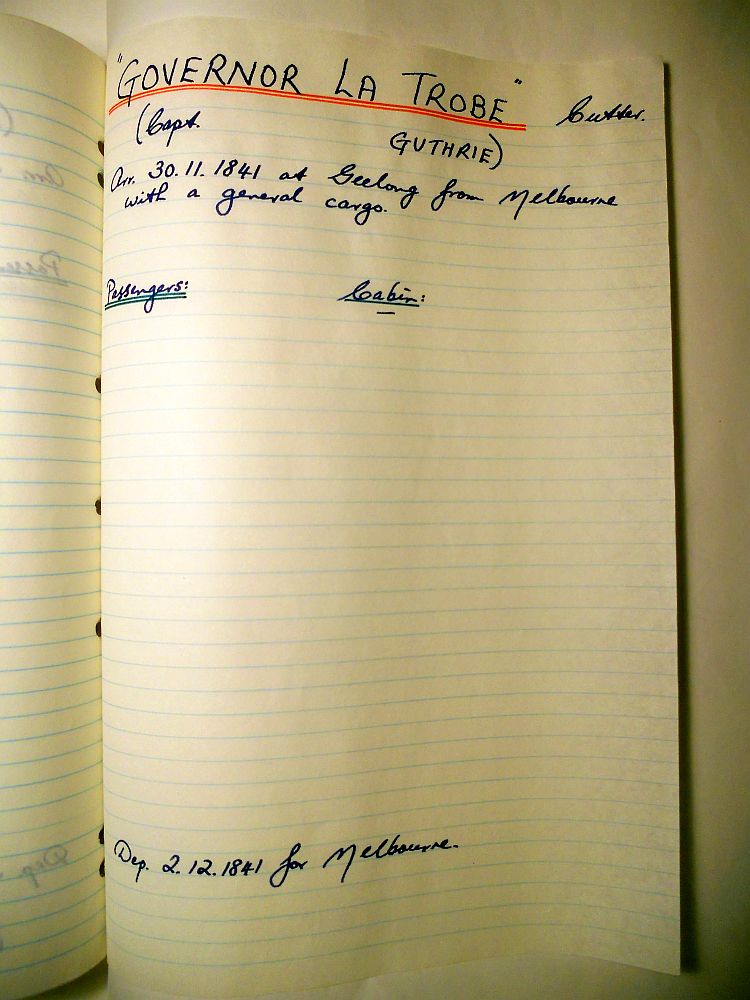 "GOVERNOR LA TROBE" Cutter.
(Capt. GUTHRIE)
Arr. 30.11.1841 at Geelong from Melbourne
with a general cargo.
Passengers: Cabin:
Dep. 2.12.1841 for Melbourne.